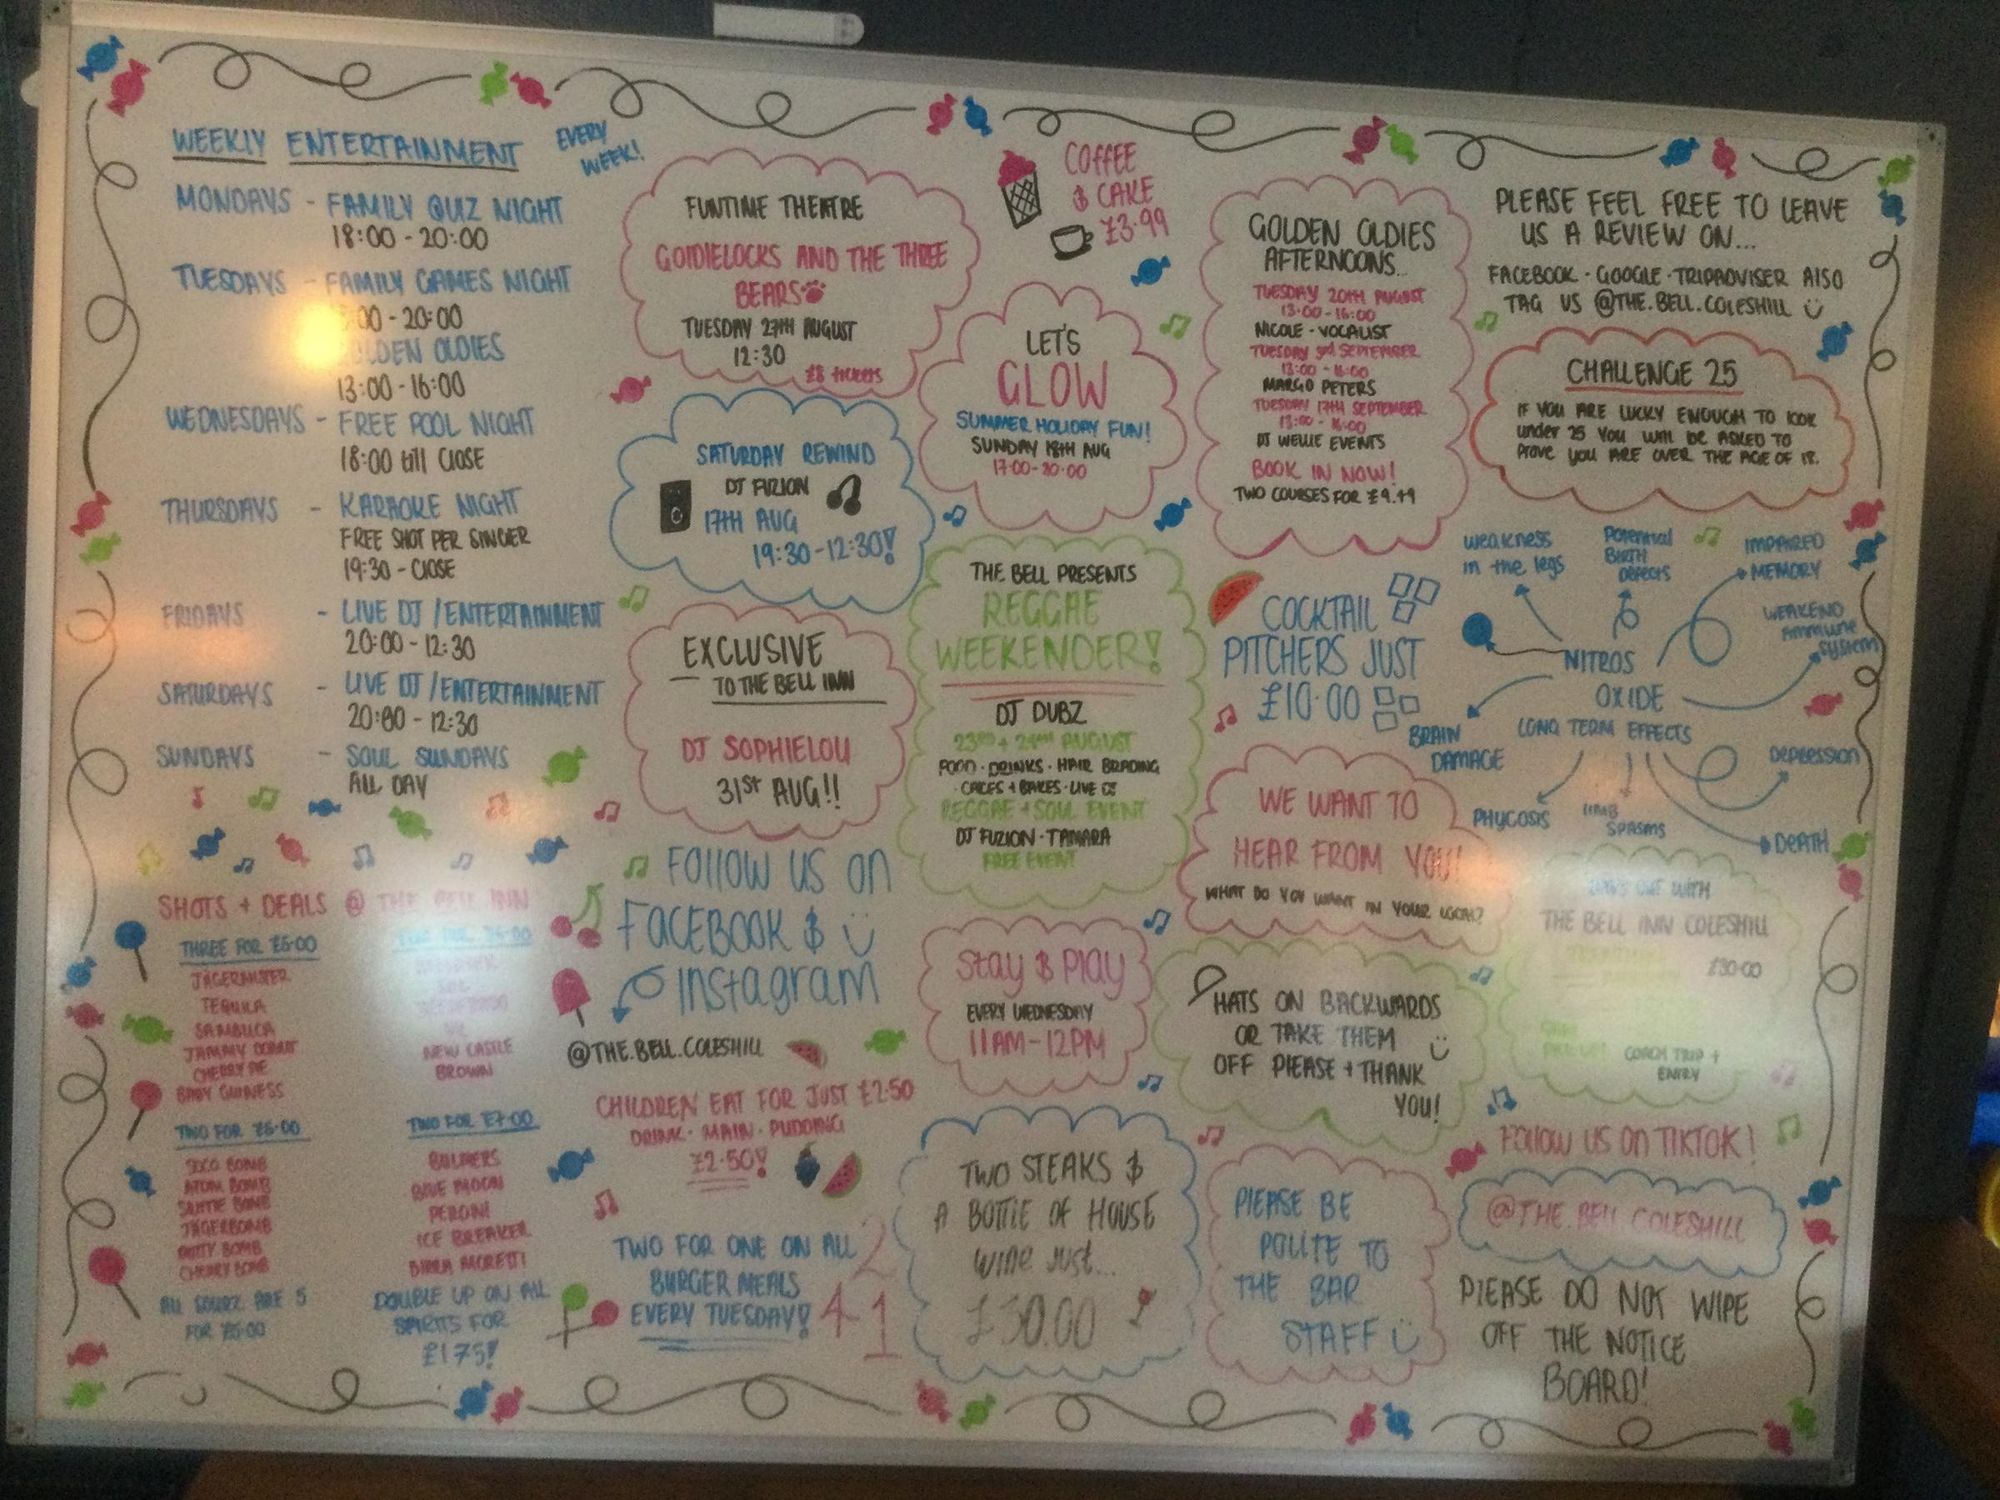 WEEKLY ENTERTAINMENT
EVERY
WEEK!
MONDAYS - FAMILY QUIZ NIGHT
18:00 - 20:00
TUESDAYS - FAMILY GAMES NIGHT
- 20:00
OLDIES
13:00 - 16:00
WEDNESDAYS - FREE POOL NIGHT
18:00 till CLOSE
THURSDAYS - KARAOKE NIGHT
FREE SHOT PER SINGER
19:30 - CLOSE
FRIDAYS - LIVE DJ / ENTERTAINMENT
20:00 - 12:30
SATURDAYS - LIVE DJ / ENTERTAINMENT
20:00 - 12:30
SUNDAYS - SOUL SUNDAYS
ALL DAY
SHOTS + DEALS @ THE BELL INN
THREE FOR £5.00
JÄGERMEISTER
TEQUILA
SAMBUCA
JAMMY DONUT
CHERRY PIE
BABY GUINESS
TWO FOR £6.00
COCO BOMB
ATOM BOMB
SKITTLE BOMB
JAGERBOMB
CHERRY BOMB
ALL SOURZ ARE 5
FOR £5.00
NEW CASTLE
BROWN
TWO FOR £7.00
BULMERS
BLUE MOON
PERONI
ICE BREAKER
BIRRA MORETTI
DOUBLE UP ON ALL
SPIRITS FOR
£1.75!
FUNTIME THEATRE
GOLDIELOCKS AND THE THREE
BEARS
TUESDAY 27TH AUGUST
12:30
£8 tickets
SATURDAY REWIND
DJ FUZION
17TH AUG
19:30 - 12:30!
EXCLUSIVE
TO THE BELL INN
DJ SOPHIELOU
31ST AUG!!
FOLLOW US ON
FACEBOOK &
INSTAGRAM
@THE.BELL.COLESHILL
CHILDREN EAT FOR JUST £2.50
DRINK · MAIN · PUDDING
£2.50!
TWO FOR ONE ON ALL
BURGER MEALS
EVERY TUESDAY!
2
4
1
COFFEE
& CAKE
£3.99
LET'S
GLOW
SUMMER HOLIDAY FUN!
SUNDAY 18TH AUG
17:00 - 20:00
THE BELL PRESENTS
REGGAE
WEEKENDER!
DJ DUBZ
23RD + 24TH AUGUST
FOOD · DRINKS · HAIR BRADING
· CAKES + BAKES · LIVE DJ
REGGAE + SOUL EVENT
DJ FUZION · TAMARA
FREE EVENT
Stay & Play
EVERY WEDNESDAY
11AM - 12PM
TWO STEAKS &
A BOTTLE OF HOUSE
WINE JUST...
£30.00
GOLDEN OLDIES
AFTERNOONS...
TUESDAY 20TH AUGUST
13:00 - 16:00
NICOLE - VOCALIST
TUESDAY 3rd SEPTEMBER
13:00 - 16:00
MARGO PETERS
TUESDAY 17TH SEPTEMBER
13:00 - 16:00
DJ WELLIE EVENTS
BOOK IN NOW!
TWO COURSES FOR £9.49
COCKTAIL
PITCHERS JUST
£10.00
WE WANT TO
HEAR FROM YOU!
WHAT DO YOU WANT IN YOUR LOCAL?
HATS ON BACKWARDS
OR TAKE THEM
OFF PLEASE + THANK
YOU!
PLEASE BE
POLITE TO
THE BAR
STAFF
PLEASE FEEL FREE TO LEAVE
US A REVIEW ON...
FACEBOOK · GOOGLE · TRIPADVISER ALSO
TAG US @THE.BELL.COLESHILL
CHALLENGE 25
IF YOU ARE LUCKY ENOUGH TO LOOK
under 25 YOU WILL be ASKED TO
Prove you ARE OVER THE AGE OF 18.
Weakness
in the legs
Potential
BIRTH
DEFECTS
IMPAIRED
MEMORY
WEAKEND
immune
system
NITROS
OXIDE
LONG TERM EFFECTS
BRAIN
DAMAGE
DEPRESSION
PHYCOSIS
LIMB
SPASMS
DEATH
DAYS OUT WITH
THE BELL INN COLESHILL
£30.00
COACH TRIP +
ENTRY
FOLLOW US ON TIKTOK!
@THE.BELL.COLESHILL
PLEASE DO NOT WIPE
OFF THE NOTICE
BOARD!